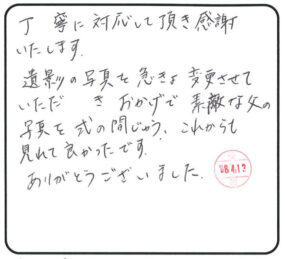 丁寧に対応して頂き感謝
いたします.
遺影の写真を急きょ変更させて
いただき おかげで 素敵な父の
写真を式の間じゅう、これからも
見れて良かったです.
ありがとうございました.